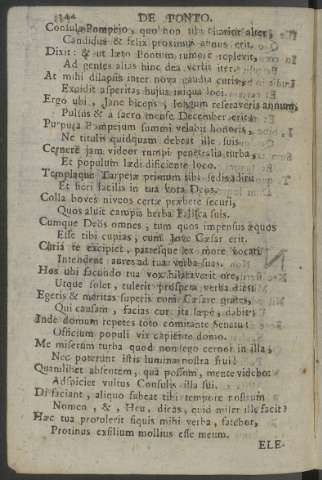 344 DE PONTO.
Consule Pompejo, quo non tibi carior alter,
Candidus & felix proximus annus erit.
Dixit: & ut læto Pontum rumore replevit,
Ad gentes alius hinc dea vertit iter.
At mihi dilapsis inter nova gaudia curis,
Excidit asperitas hujus iniqua loci.
Ergo ubi, Jane biceps, longum reseraveris annum,
Pulsus & a sacro mense December erit:
Purpura Pompejum summi velabit honoris,
Ne titulis quidquam debeat ille suis.
Cernere jam videor rumpi penetralia turba,
Et populum lædi deficiente loco.
Templaque Tarpejæ primum tibi sedis adiri
Et fieri faciles in tua vota Deos.
Colla boves niveos certæ præbere securi,
Quos aluit campis herba Falisca suis.
Cumque Deos omnes, tum quos impensius æquos
Esse tibi cupias, cum Jove Cæsar erit.
Curia te excipiet, patresque ex more vocati
Intendent aures ad tua verba suas.
Hos ubi facundo tua vox hilaraverit ore,
Utque solet, tulerit prospera verba dies:
Egeris & meritas superis cum Cæsare grates,
Qui causam, facias cur ita sæpe, dabit:
Inde domum repetes toto comitante Senatu:
Officium populi vix capiente domo.
Me miserum turba quod non ego cernor in illa,
Nec poterunt istis lumina nostra frui!
Quamlibet absentem, qua possum, mente videbo:
Adspiciet vultus Consulis illa sui.
Di faciant, aliquo subeat tibi tempore nostrum
Nomen, &, Heu, dicas, quid miser ille facit?
Hæc tua protulerit siquis mihi verba, fatebor,
Protinus exsilium mollius esse meum.
ELE-